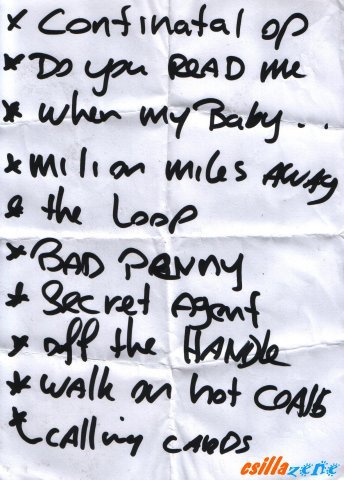 * Continatal op
* Do you READ me
* when my Baby...
* milion miles AWAy
* the Loop
* BAD PENNy
* Secret Agent
* off the HANDle
* walk on hot COAls
* cAlling cARDs
csillazene